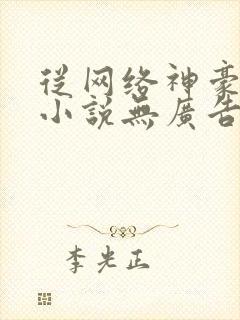 從网络神豪
小說無廣告
李光正